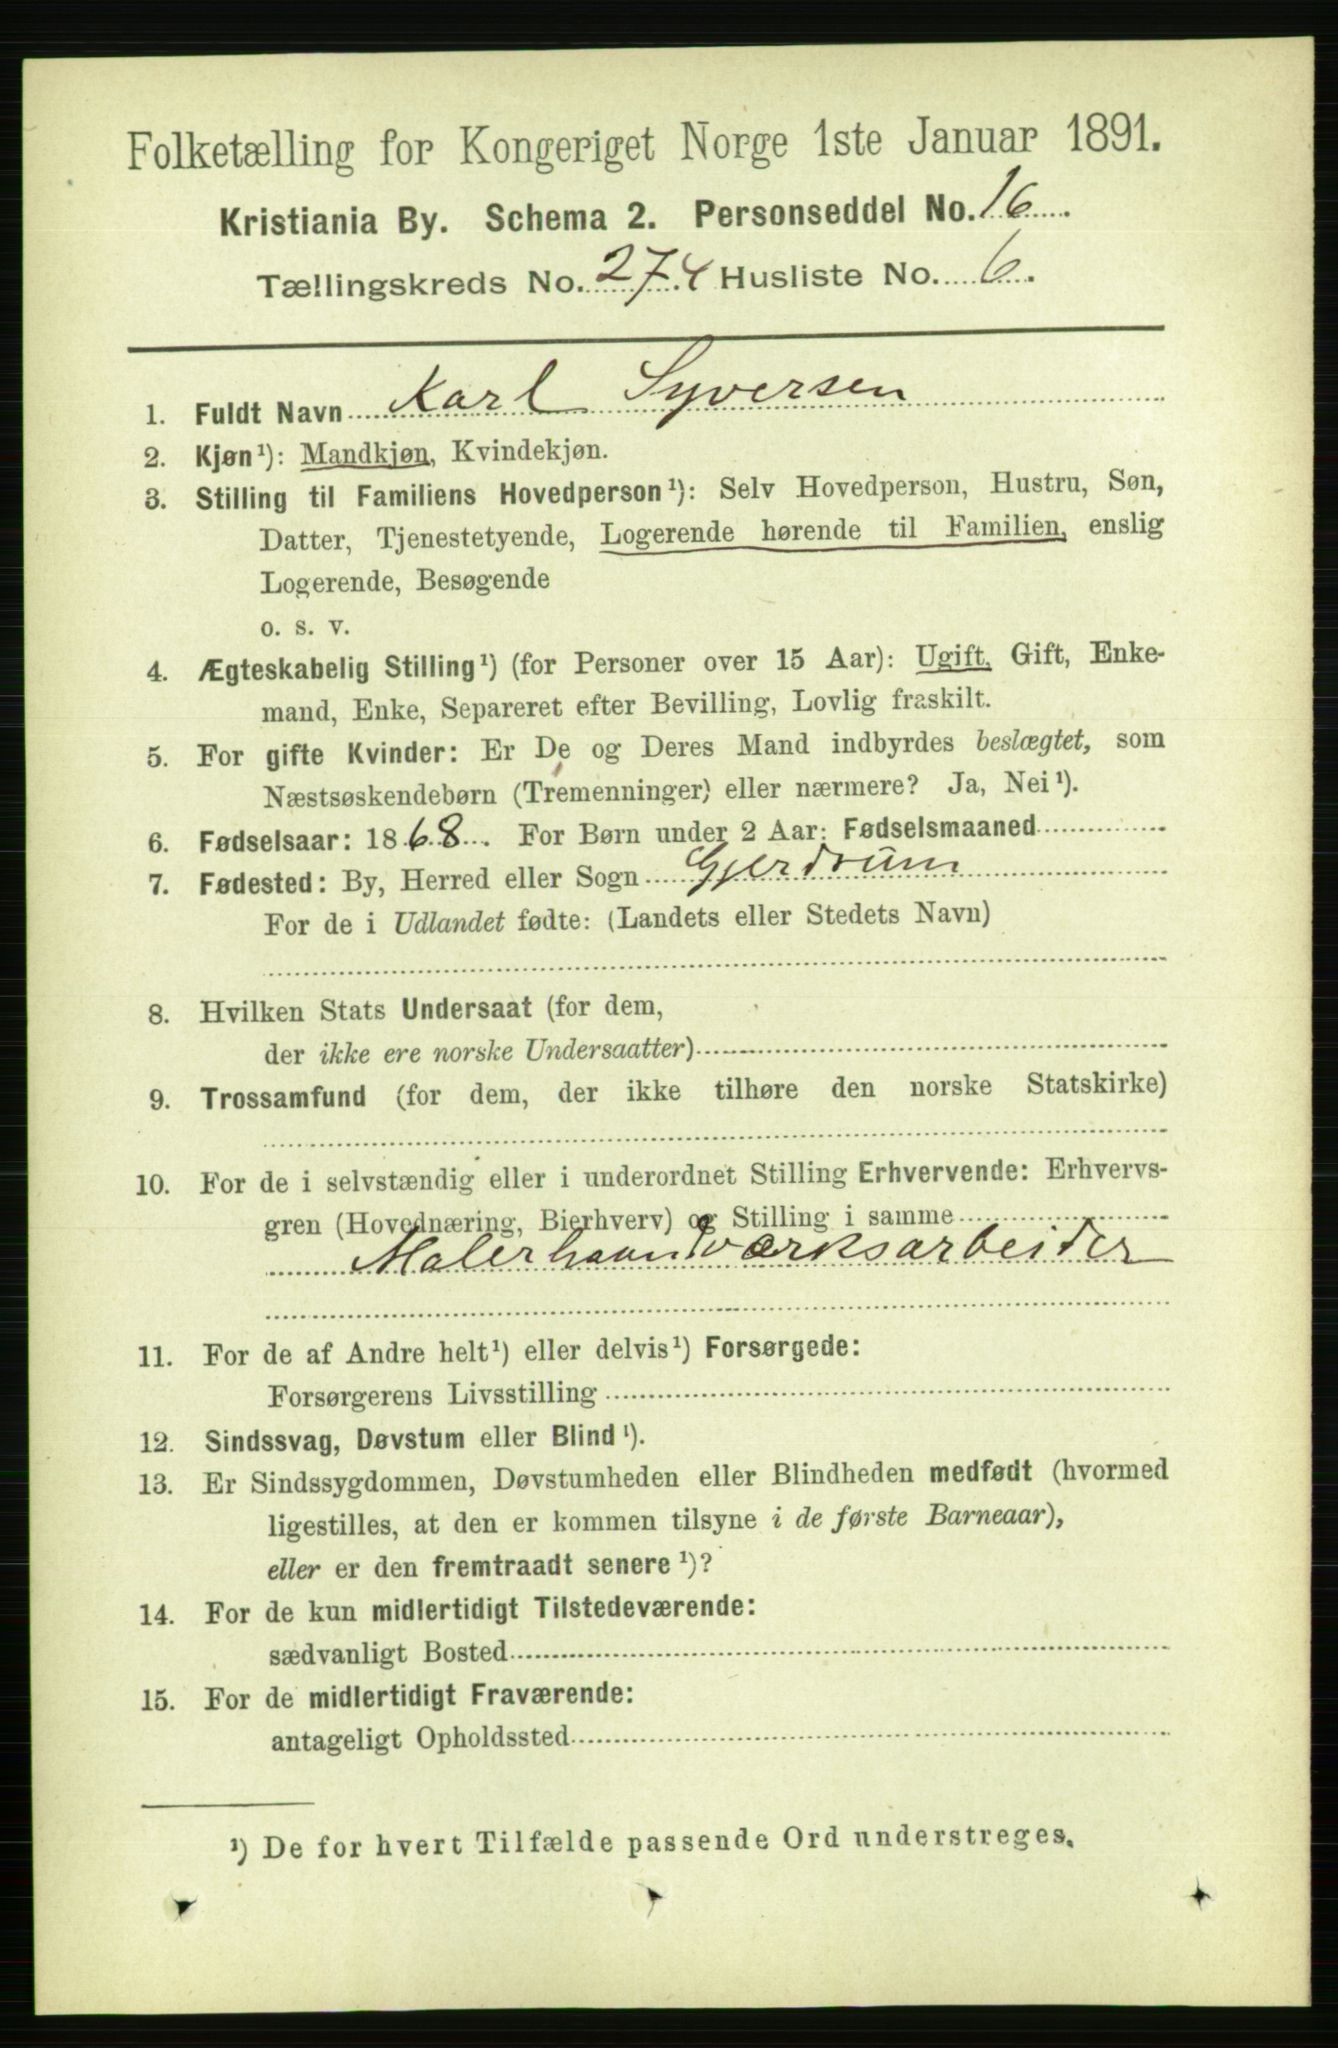 Folketælling for Kongeriget Norge 1ste Januar 1891.
Kristiania By. Schema 2. Personseddel No. 16.
Tællingskreds No. 274 Husliste No. 6.
1. Fuldt Navn Karl Syversen
2. Kjøn¹): Mandkjøn, Kvindekjøn.
3. Stilling til Familiens Hovedperson¹): Selv Hovedperson, Hustru, Søn,
Datter, Tjenestetyende, Logerende hørende til Familien, enslig
Logerende, Besøgende
o. s. v.
4. Ægteskabelig Stilling¹) (for Personer over 15 Aar): Ugift, Gift, Enke-
mand, Enke, Separeret efter Bevilling, Lovlig fraskilt.
5. For gifte Kvinder: Er De og Deres Mand indbyrdes beslægtet, som
Næstsøskendebørn (Tremenninger) eller nærmere? Ja, Nei¹).
6. Fødselsaar: 1868. For Børn under 2 Aar: Fødselsmaaned
7. Fødested: By, Herred eller Sogn Gjerdrum
For de i Udlandet fødte: (Landets eller Stedets Navn)
8. Hvilken Stats Undersaat (for dem,
der ikke ere norske Undersaatter)
9. Trossamfund (for dem, der ikke tilhøre den norske Statskirke)
10. For de i selvstændig eller i underordnet Stilling Erhvervende: Erhvervs-
gren (Hovednæring, Bierhverv) og Stilling i samme
Malerhaandværksarbeider
11. For de af Andre helt¹) eller delvis¹) Forsørgede:
Forsørgerens Livsstilling
12. Sindssvag, Døvstum eller Blind¹).
13. Er Sindssygdommen, Døvstumheden eller Blindheden medfødt (hvormed
ligestilles, at den er kommen tilsyne i de første Barneaar),
eller er den fremtraadt senere¹)?
14. For de kun midlertidigt Tilstedeværende:
sædvanligt Bosted
15. For de midlertidigt Fraværende:
antageligt Opholdssted
¹) De for hvert Tilfælde passende Ord understreges.